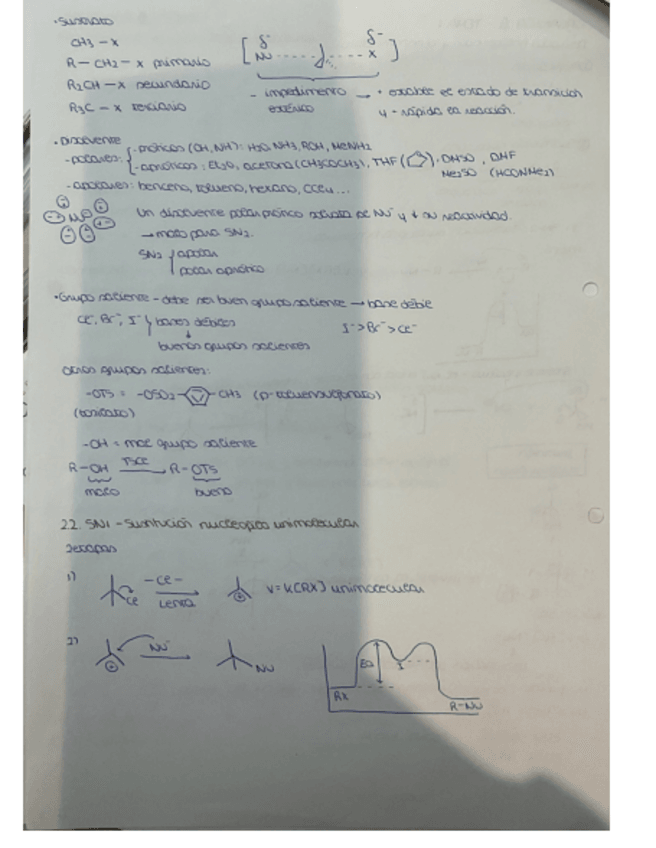 · Sustrato
CH3 - X
R - CH2 - X primario
R2CH - X secundario
R3C - X terciario
[ δ- Nu ..... ..... X δ- ]
- impedimento estérico → + estable el estado de transición y + rápida la reacción.
· Disolvente
- polares: - próticos (OH, NH): H2O, NH3, ROH, MeNH2
- apróticos: Et2O, acetona (CH3COCH3), THF ( ), DMSO, DMF
Me2SO (HCONMe2)
- apolares: benceno, tolueno, hexano, CCl4...
Nu
Un disolvente polar prótico solvata el Nu- y ↓ su reactividad.
→ malo para SN2.
SN2 apolar
polar aprótico
· Grupo saliente - debe ser buen grupo saliente → base débil
Cl-, Br-, I- } bases débiles
I- > Br- > Cl-
buenos grupos salientes
Otros grupos salientes:
- OTS = - OSO2 - - CH3 (p-toluensulfonato)
(tosilato)
- OH = mal grupo saliente
R - OH TSCl → R - OTS
malo bueno
2.2. SN1 - Sustitución nucleófila unimolecular
2 etapas
1) Cl - Cl - lenta ⊕ v = k[RX] unimolecular
2) ⊕ Nu- → Nu
Ea I
RX R - Nu